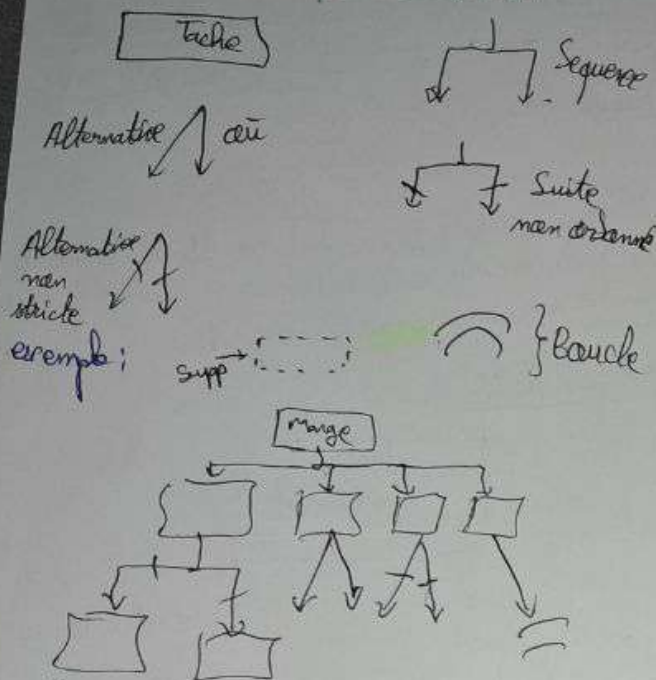 Tache
Sequence
Alternative
où
Suite
non ordonné
Alternative
non
stricte
exemple:
Supp
Boucle
Mange